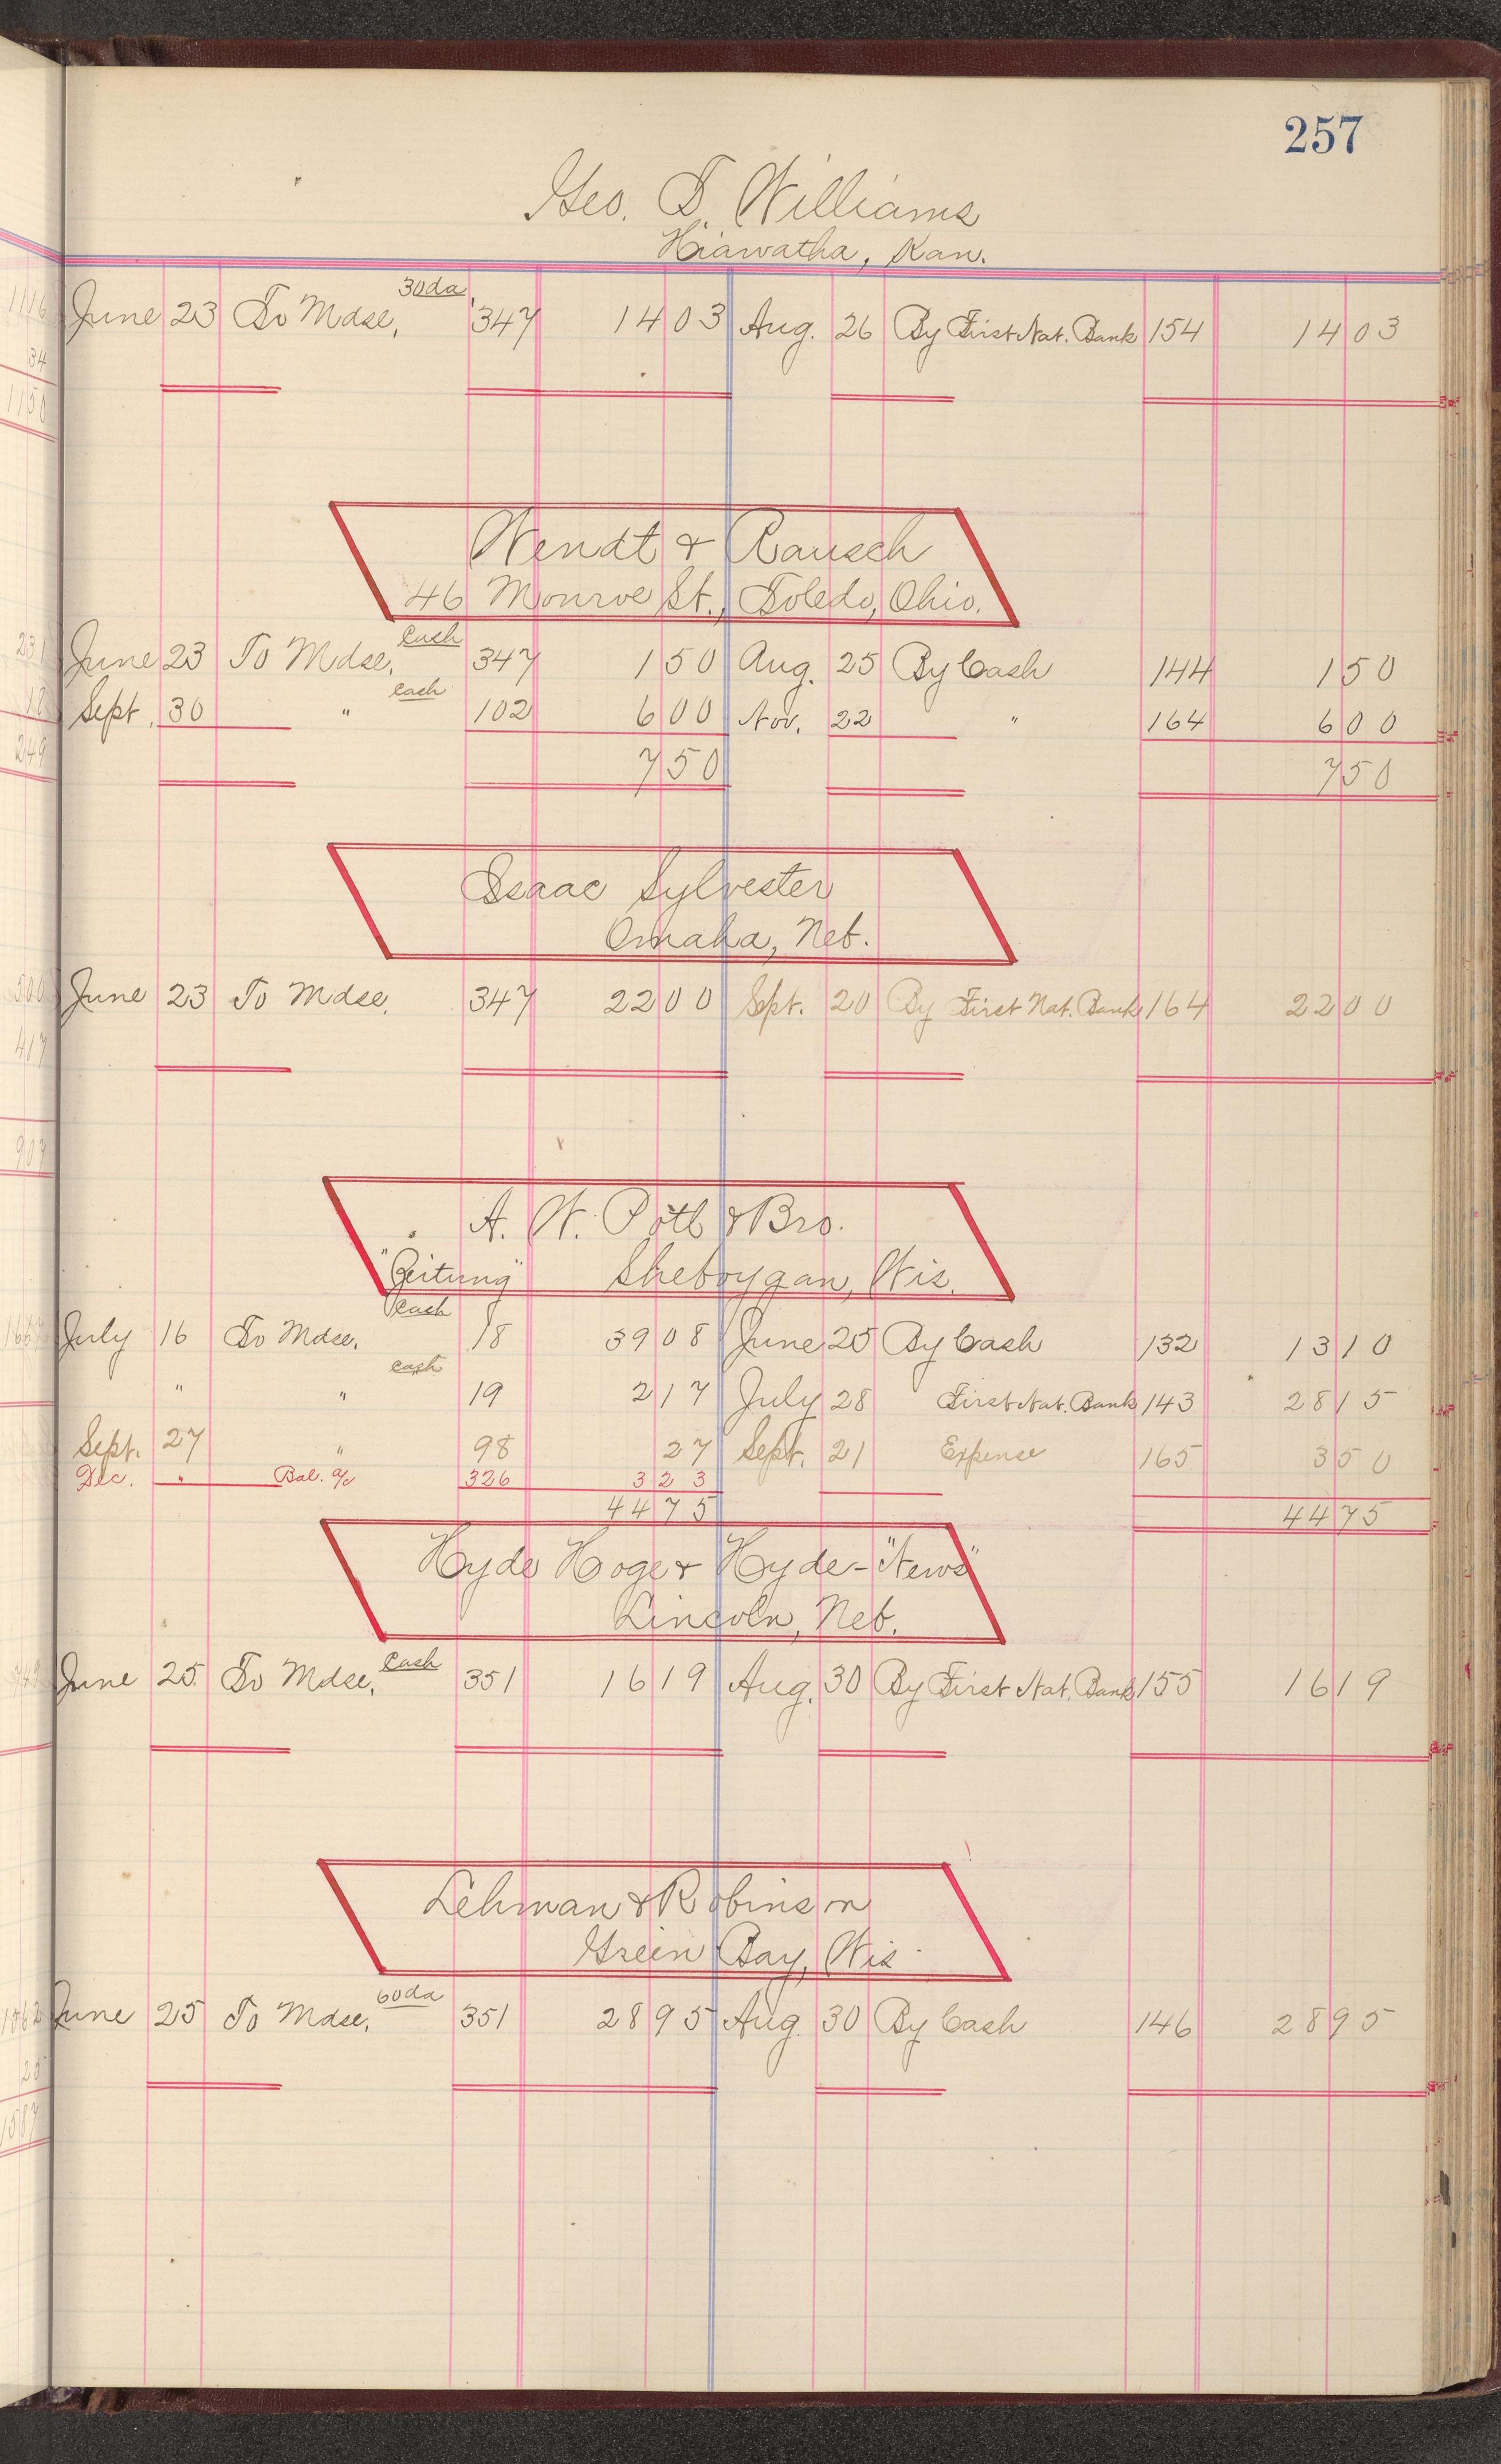 257
Geo. T. Williams
Hiawatha, Kan.
June 23 To Mdse, 30da 347 1403 Aug. 26 By First Nat. Bank 154 1403
Wendt & Rausch
46 Monroe St., Toledo, Ohio.
June 23 To Mdse, Cash 347 150 Aug. 25 By Cash 144 150
Sept. 30 " Cash 102 600 Nov. 22 " 164 600
750 750
Isaac Sylvester
Omaha, Neb.
June 23 To Mdse, 347 2200 Sept. 20 By First Nat. Bank 164 2200
A. W. Pott & Bro.
"Zeitung" Sheboygan, Wis.
July 16 To Mdse, Cash 18 3908 June 25 By Cash 132 1310
" " Cash 19 217 July 28 First Nat. Bank 143 2815
Sept. 27 " 98 27 Sept. 21 Expense 165 350
Dec. " Bal. a/c 326 323
4475 4475
Hyde Hoge & Hyde - "News"
Lincoln, Neb.
June 25 To Mdse, Cash 351 1619 Aug. 30 By First Nat. Bank 155 1619
Lehman & Robinson
Green Bay, Wis.
June 25 To Mdse, 60da 351 2895 Aug. 30 By Cash 146 2895